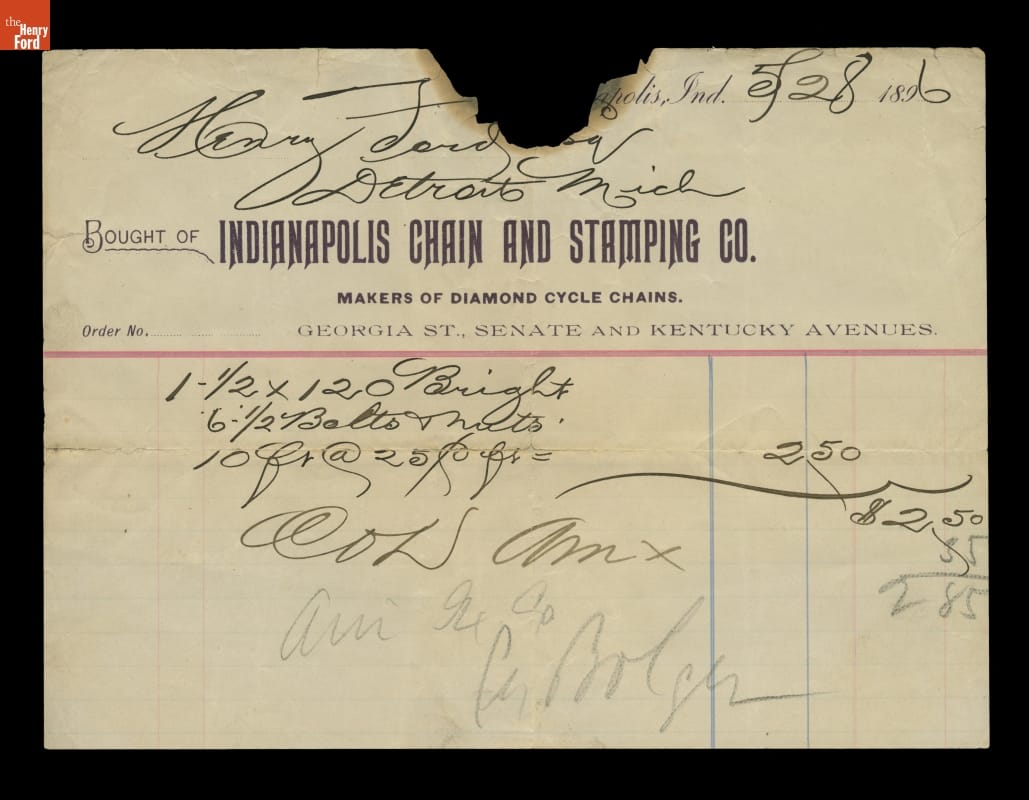 the Henry Ford
apolis, Ind. 5/28 1896
Henry Ford
Detroit Mich
BOUGHT OF INDIANAPOLIS CHAIN AND STAMPING CO.
MAKERS OF DIAMOND CYCLE CHAINS.
Order No. GEORGIA ST., SENATE AND KENTUCKY AVENUES.
1-1/2 x 120 Bright
6-1/2 Bolts & nuts.
10 ft @ 25 ft = 2 50
$2.50
35
COD Am x
2 85
Am Ex Co
Bolger